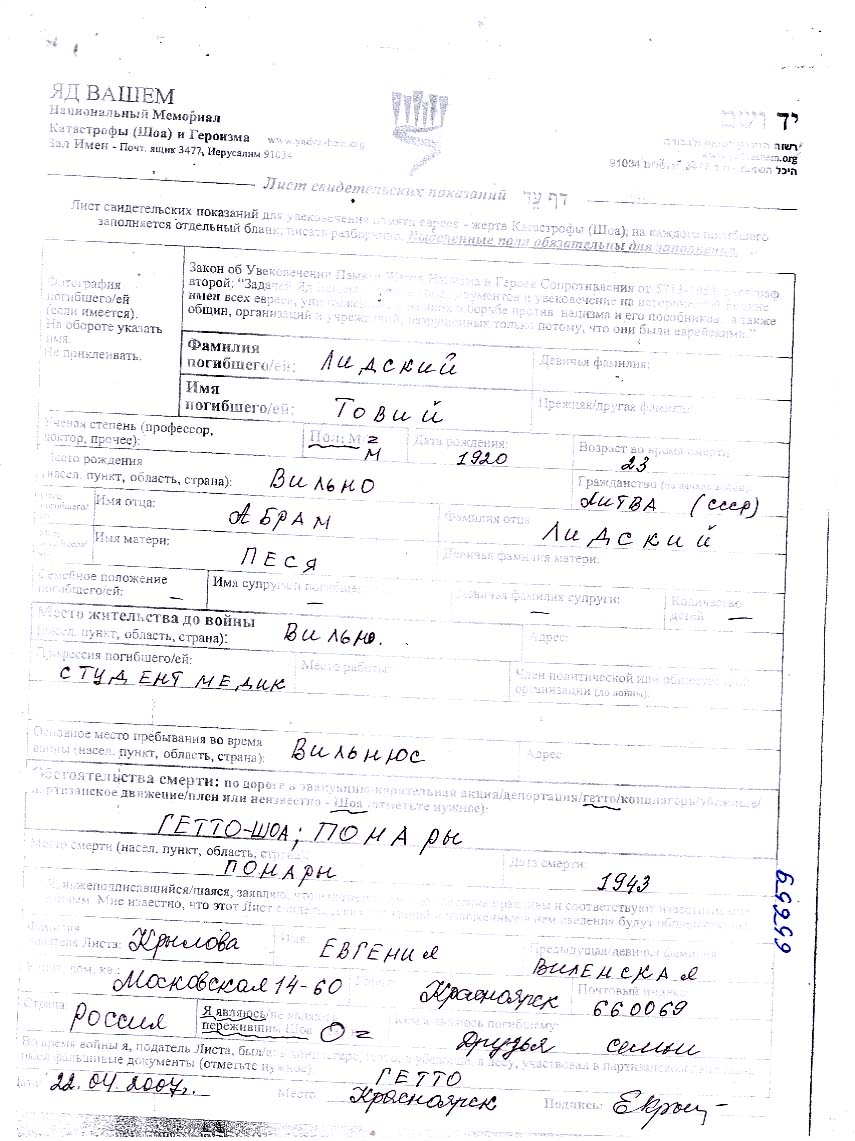 ЯД ВАШЕМ
Национальный Мемориал
Катастрофы (Шоа) и Героизма www.yadvashem.org
Зал Имен - Почт. ящик 3477, Иерусалим 91034
יד ושם
www.yadvashem.org
91034
Лист свидетельских показаний דף עד
Лист свидетельских показаний для увековечения памяти евреев - жертв Катастрофы (Шоа); на каждого погибшего
заполняется отдельный бланк; писать разборчиво. Выделенные поля обязательны для заполнения.
Фотография
погибшего/ей
(если имеется).
На обороте указать
имя.
Не приклеивать.
Закон об Увековечении Памяти Жертв Нацизма и Героев Сопротивления от
второй: "Задачей Яд
имен всех евреев, в борьбе против нацизма и его пособников, а также
общин, организаций и учреждений, разрушенных только потому, что они были еврейскими."
Фамилия
погибшего/ей: ЛИДСКИЙ
Девичья фамилия:
Имя
погибшего/ей: ТОВИЙ
Прежняя/другая фамилия:
Ученая степень (профессор,
доктор, прочее):
Пол: М
М
Дата рождения:
1920
Возраст во время смерти:
23
Место рождения
(насел. пункт, область, страна): ВИЛЬНО
Гражданство (на начало войны)
ЛИТВА (СССР)
Имя отца:
АБРАМ
Фамилия отца
ЛИДСКИЙ
Имя матери:
ПЕСЯ
Девичья фамилия матери:
Семейное положение
погибшего/ей: —
Имя супруги
—
Девичья фамилия супруги:
—
Количество
детей —
Место жительства до войны
(насел. пункт, область, страна): ВИЛЬНО.
Адрес:
Профессия погибшего/ей:
СТУДЕНТ МЕДИК
Место работы:
Член политической или общественной
организации (до войны):
Основное место пребывания во время
войны (насел. пункт, область, страна): ВИЛЬНЮС
Адрес
Обстоятельства смерти: по дороге в эвакуацию/карательная акция/депортация/гетто/концлагерь/убежище/
партизанское движение/плен или неизвестно - Шоа (отметьте нужное):
ГЕТТО-ШОА; ПОНАРЫ
Место смерти (насел. пункт, область, страна)
ПОНАРЫ
Дата смерти:
1943
Я, нижеподписавшийся/шаяся, заявляю, что и соответствуют известным мне
Мне известно, что этот Лист и изложенные в нем сведения будут
Фамилия
подателя Листа: Крылова
Имя: ЕВГЕНИЯ
Предыдущая/девичья фамилия
ВИЛЕНСКАЯ
Улица, дом, кв.:
Московская 14-60
Красноярск
Почтовый индекс
660069
Страна:
РОССИЯ
Я являюсь/не являюсь
пережившим Шоа
Кем я являюсь погибшему:
Друзья семьи
Во время войны я, податель Листа, был/а в гетто, в лесу, участвовал в партизанском
фальшивые документы (отметьте нужное)
ГЕТТО
Дата: 22.04.2007г.
Место Красноярск
Подпись:
65259